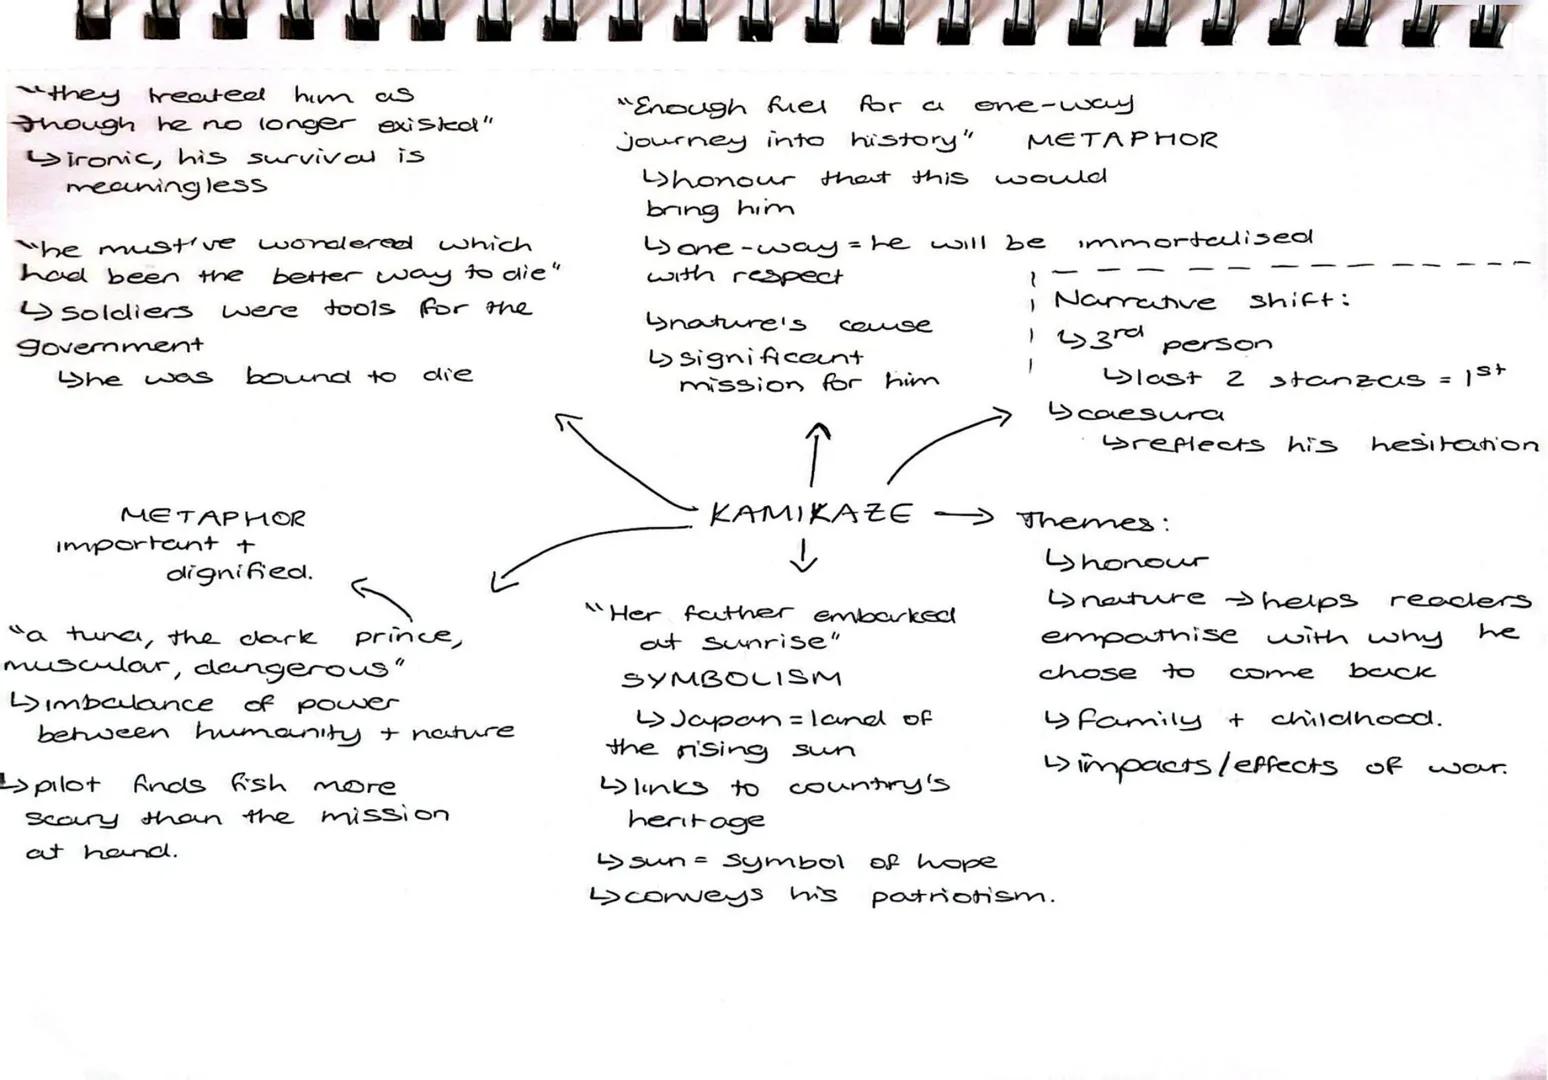 "they treated him as
though he no longer existed"
↳ ironic, his survival is
meaningless
"he must've wondered which
had been the better way to die"
↳ soldiers were tools for the
government
↳ he was bound to die
"Enough fuel for a one-way
journey into history" METAPHOR
↳ honour that this would
bring him
↳ one-way = he will be immortalised
with respect
↳ nature's cause
↳ significant
mission for him
Narrative shift:
↳ 3rd person
↳ last 2 stanzas = 1st
↳ caesura
↳ reflects his hesitation
KAMIKAZE → Themes:
↳ honour
↳ nature → helps readers
empathise with why he
chose to come back
↳ family + childhood.
↳ impacts/effects of war.
METAPHOR
important +
dignified.
"a tuna, the dark prince,
muscular, dangerous"
↳ imbalance of power
between humanity + nature
↳ pilot finds fish more
scary than the mission
at hand.
"Her father embarked
at sunrise"
SYMBOLISM
↳ Japan = land of
the rising sun
↳ links to country's
heritage
↳ sun = symbol of hope
↳ conveys his patriotism.